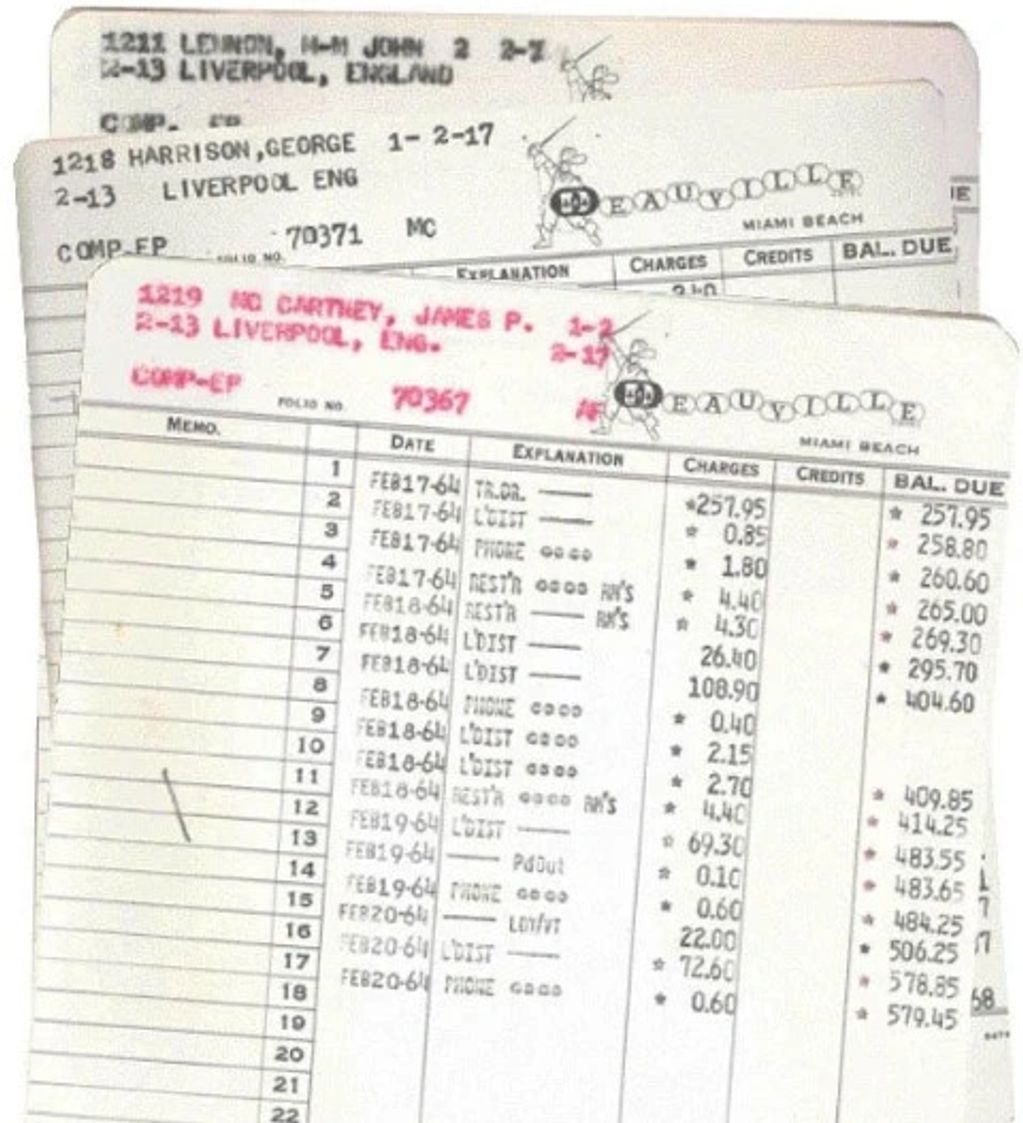 1211 LENNON, M-M JOHN 2 2-7
2-13 LIVERPOOL, ENGLAND
COMP. EP
1218 HARRISON,GEORGE 1- 2-17
2-13 LIVERPOOL ENG
BEAUVILLE
MIAMI BEACH
COMP-EP FOLIO NO. 70371 MC
EXPLANATION CHARGES CREDITS BAL. DUE
1219 MC CARTNEY, JAMES P. 1-2
2-13 LIVERPOOL, ENG. 2-17
COMP-EP FOLIO NO. 70367
BEAUVILLE
MIAMI BEACH
MEMO. DATE EXPLANATION CHARGES CREDITS BAL. DUE
1 FEB17-64 TR.DR. —— *257.95 * 257.95
2 FEB17-64 L'DIST —— * 0.85 * 258.80
3 FEB17-64 PHONE * 1.80 * 260.60
4 FEB17-64 REST'R RM'S * 4.40 * 265.00
5 FEB18-64 REST'R —— RM'S * 4.30 * 269.30
6 FEB18-64 L'DIST —— 26.40 * 295.70
7 FEB18-64 L'DIST —— 108.90 * 404.60
8 FEB18-64 PHONE * 0.40
9 FEB18-64 L'DIST * 2.15
10 FEB18-64 L'DIST * 2.70 * 409.85
11 FEB18-64 REST'R RM'S * 4.40 * 414.25
12 FEB19-64 L'DIST —— * 69.30 * 483.55
13 FEB19-64 —— PdOut * 0.10 * 483.65
14 FEB19-64 PHONE * 0.60 * 484.25
15 FEB20-64 —— 22.00 * 506.25
16 FEB20-64 L'DIST —— * 72.60 * 578.85
17 FEB20-64 PHONE * 0.60 * 579.45
18
19
20
21
22